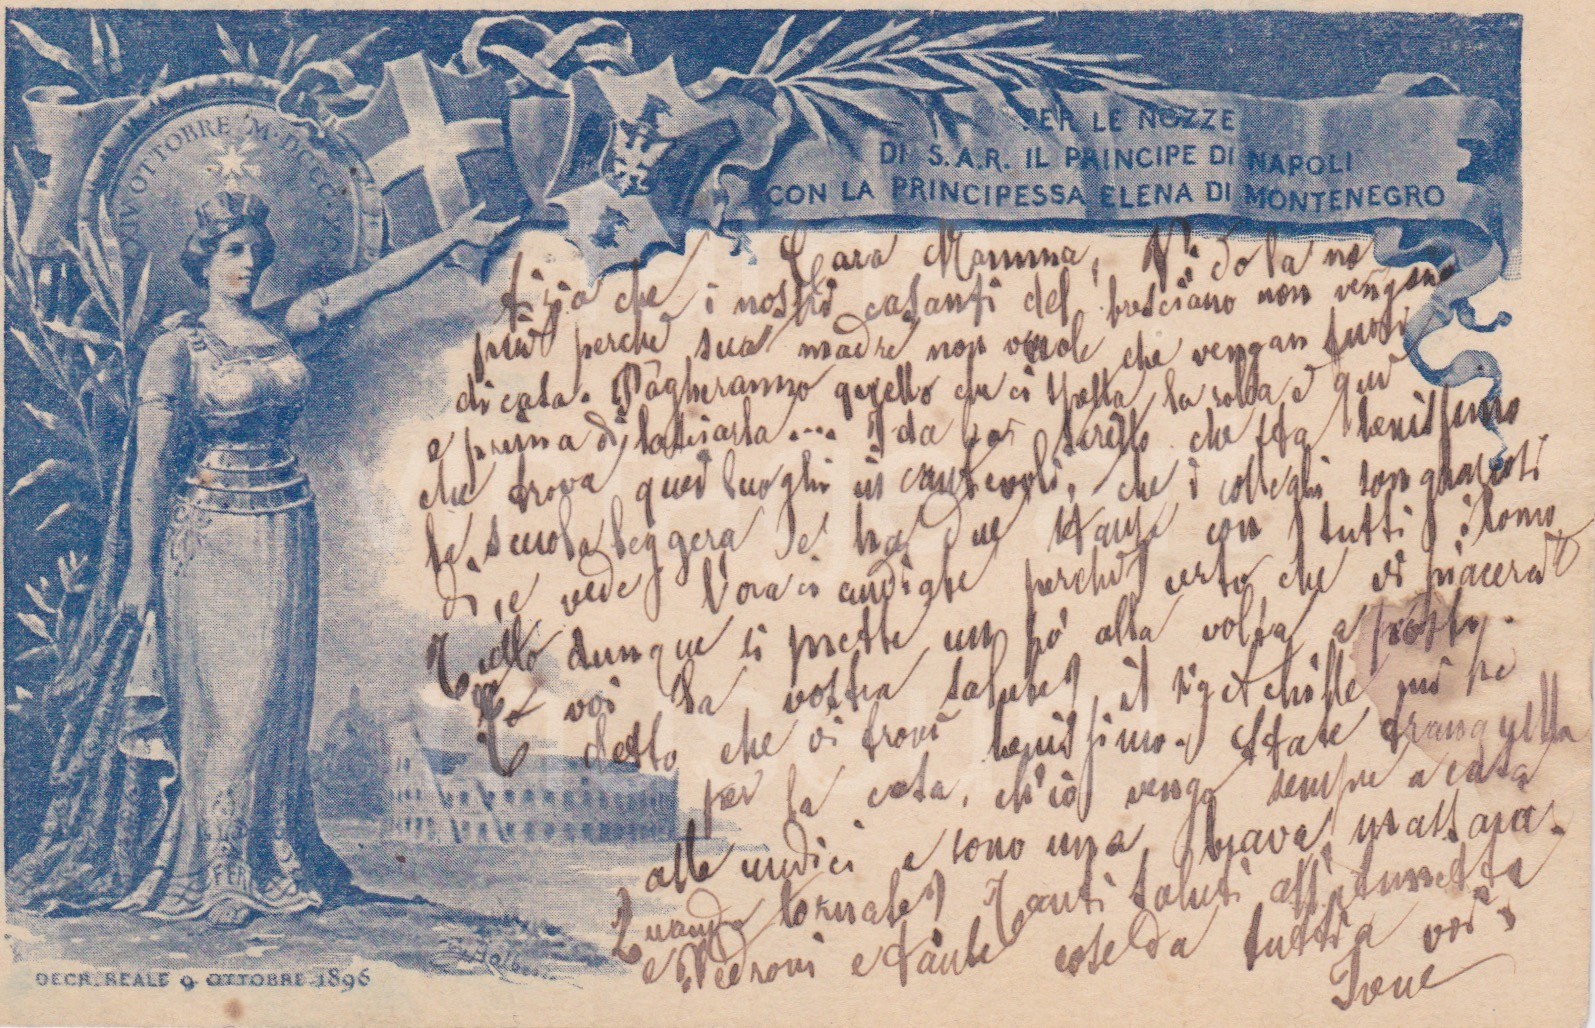 XXIV OTTOBRE M·DCCC·XC
PER LE NOZZE
DI S.A.R. IL PRINCIPE DI NAPOLI
CON LA PRINCIPESSA ELENA DI MONTENEGRO
Cara Mamma, Vi do la no
tizia che i nostri cascanti del bresciano non vengono
più perchè sua madre non vuole che vengan fuori
di casa. Pagheranno quello che ci spetta, la roba è qui
e prima di lasciarla.... Ida poi scritto che sta benissimo
che trova quei luoghi che i colleghi son graziosi
la scuola leggera e ha due stanze con tutti i como
di, e vede perchè certo che vi piacerà
Tutto dunque si mette un pò alla volta a posto.
E voi la vostra salute? il mi ha
detto che vi trovi benissimo. State tranquilla
per la casa, ch'io vengo sempre a casa
alle undici e sono una brava massaia.
Quando tornate? Tanti saluti
e Pedroni e tante cose da tutti a voi
FERT
DECR. REALE 9 OTTOBRE 1896